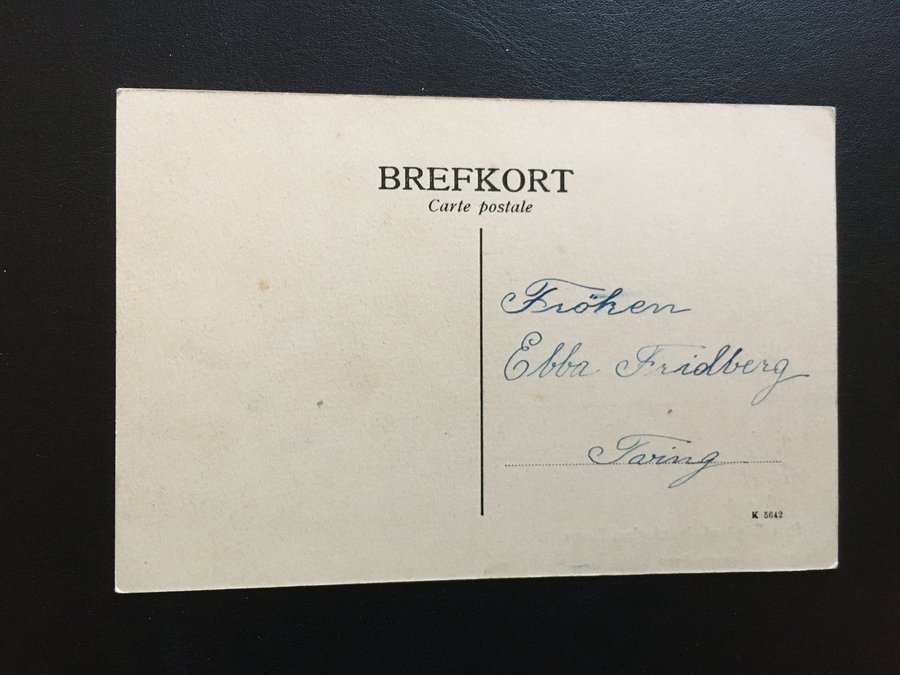 BREFKORT
Carte postale
Fröken
Ebba Fridberg
Tving
K 5642